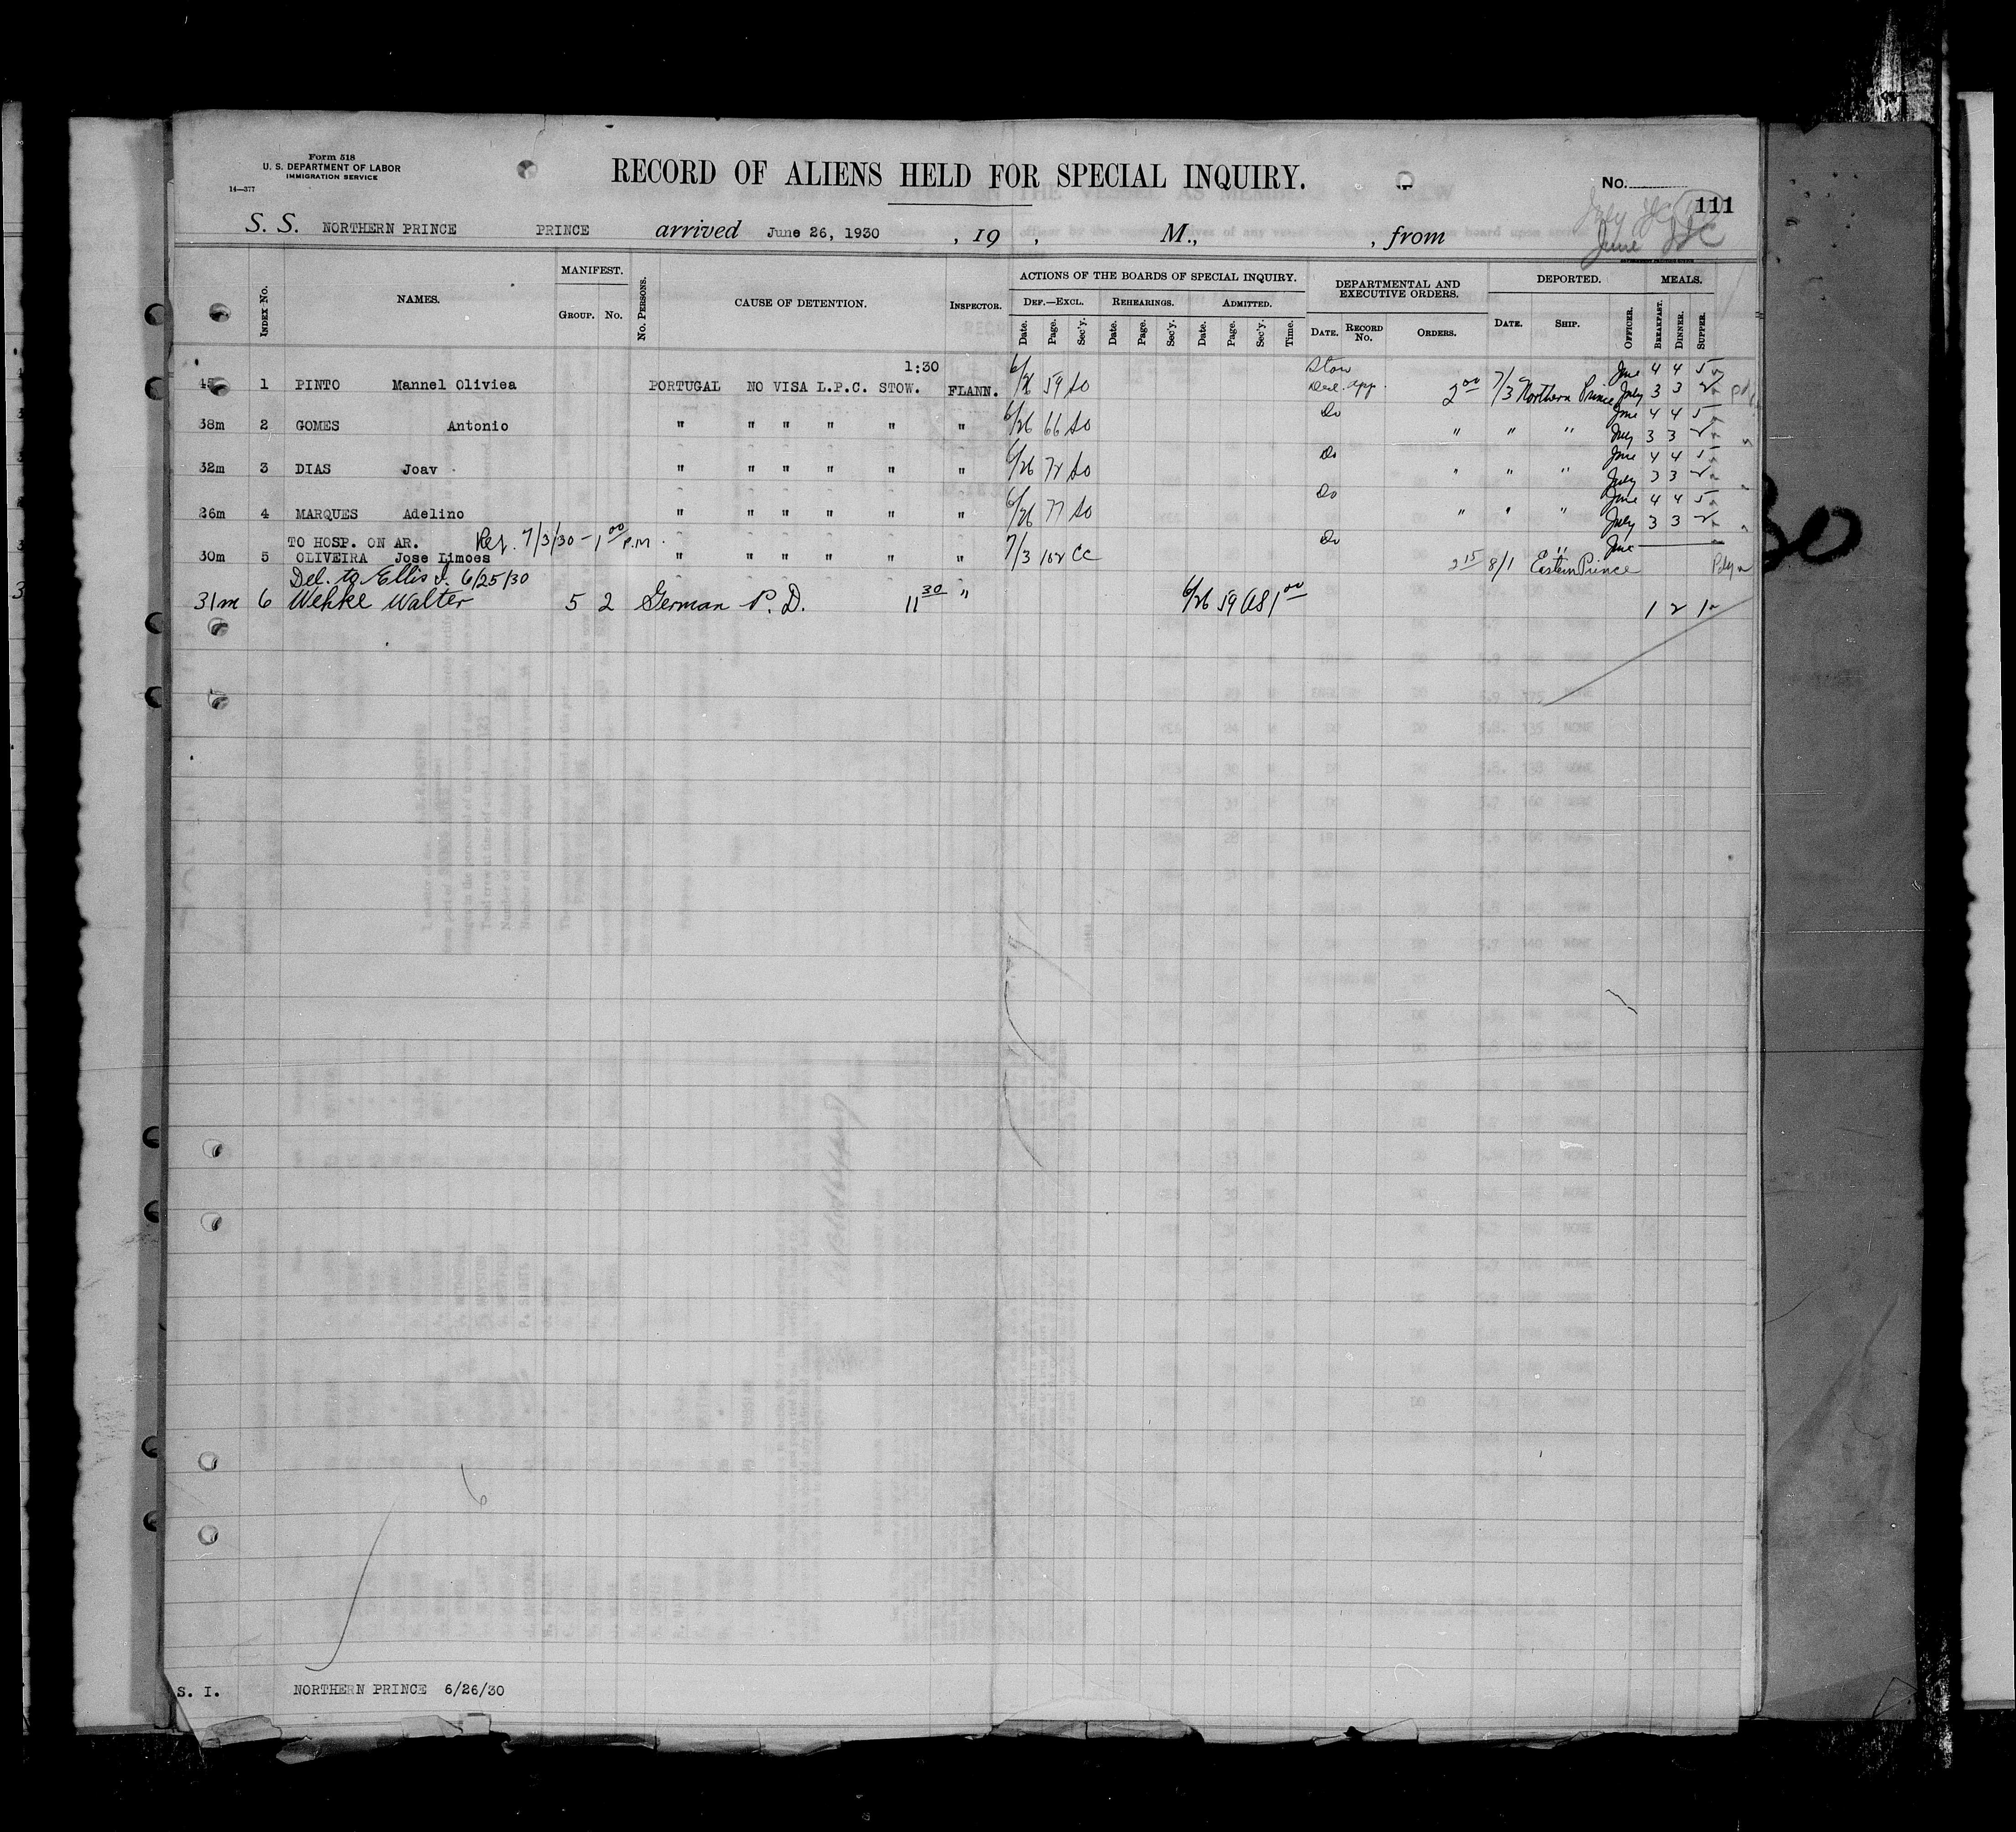 Form 518
U. S. DEPARTMENT OF LABOR
IMMIGRATION SERVICE
14—377
RECORD OF ALIENS HELD FOR SPECIAL INQUIRY.
No.
111
July
June
S. S. NORTHERN PRINCE PRINCE arrived June 26, 1930 , 19 , M., , from
INDEX No. NAMES. MANIFEST. GROUP. No. No. PERSONS. CAUSE OF DETENTION. INSPECTOR. ACTIONS OF THE BOARDS OF SPECIAL INQUIRY. DEF.—EXCL. Date. Page. Sec'y. REHEARINGS. Date. Page. Sec'y. ADMITTED. Date. Page. Sec'y. Time. DEPARTMENTAL AND EXECUTIVE ORDERS. DATE. RECORD No. ORDERS. DEPORTED. DATE. SHIP. OFFICER. MEALS. BREAKFAST. DINNER. SUPPER.
1:30 Stow June 4 4 5
1 PINTO Mannel Oliviea PORTUGAL NO VISA L.P.C. STOW. FLANN. 6/26 59 SO Desl. App. 2 00 7/3 Northern Prince July 3 3 2
Do June 4 4 5
38m 2 GOMES Antonio " " " " " " 6/26 66 SO " " " July 3 3 2
Do June 4 4 5
32m 3 DIAS Joav " " " " " " 6/26 72 SO " " " July 3 3 2
Do June 4 4 5
26m 4 MARQUES Adelino " " " " " " 6/26 77 SO " " " July 3 3 2
TO HOSP. ON AR. Rej. 7/3/30 - 1 00 P.M. Do June
30m 5 OLIVEIRA Jose Limoes " " " " " " 7/3 102 CC 2 15 8/1 Eastern Prince
Del. to Ellis I. 6/25/30
31m 6 Wehke Walter 5 2 German P. D. 11 30 " 6/26 59 GS 1 00 1 2 1
S. I. NORTHERN PRINCE 6/26/30